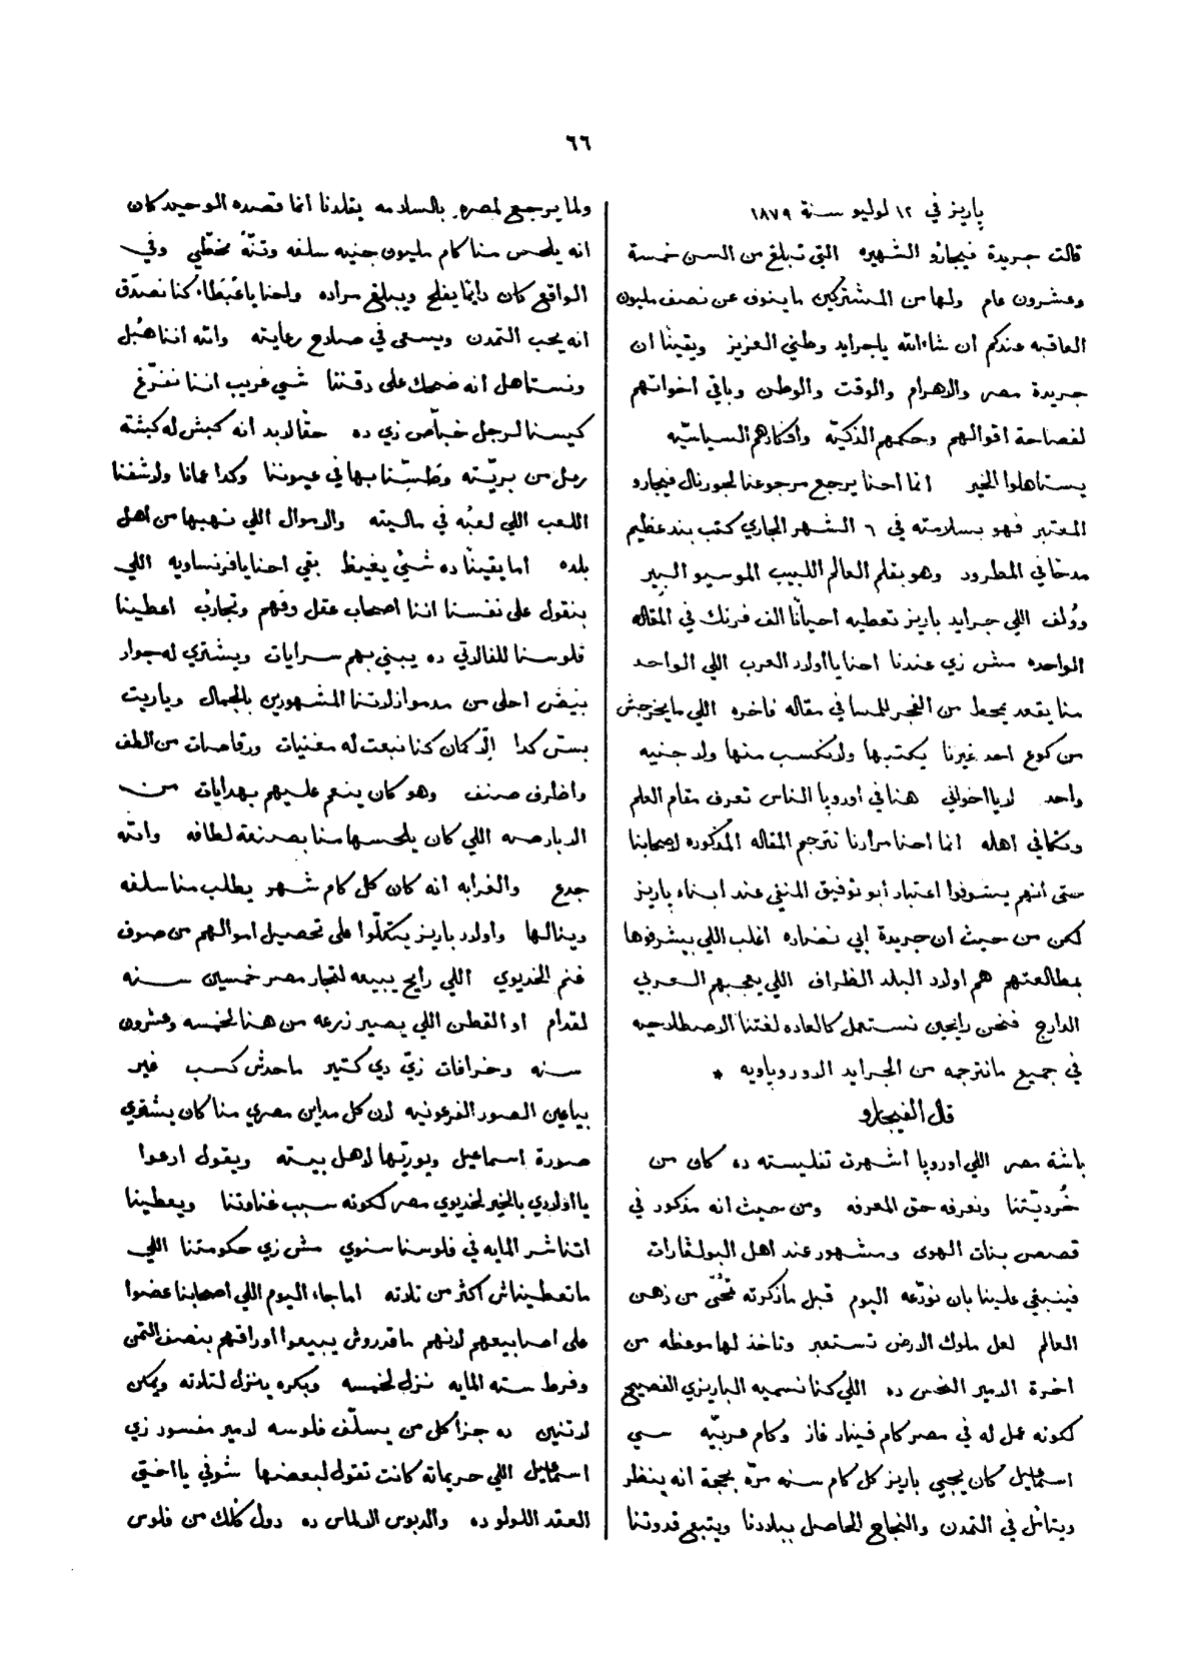 ٦٦
پاريز في ١٢ لوليو سنة ١٨٧٩
قالت جريدة فيجارو الشهيره التي تبلغ من السن خمسة
وعشرون عام ولها من المشتركين ما ينوف عن نصف مليون
العاقبه عندكم ان شاء الله ياجرايد وطني العزيز ويقينًا ان
جريدة مصر والاهرام والوقت والوطن وباقي اخواتهم
لفصاحة اقوالهم وحكمهم الذكيّه وافكارهم السياسيّه
يستاهلوا الخير انما احنا يرجع مرجوعنا لجورنال فيجارو
المعتبر فهو بسلامته في ٦ الشهر الجاري كتب بند عظيم
مدخا في المطرود وهو بقلم العالم اللبيب الموسيو البير
وولف اللي جرايد باريز تعطيه احيانًا الف فرنك في المقاله
الواحده مش زي عندنا احنا يااولاد العرب اللي الواحد
منا يقعد يحطط من الفجر للمسا في مقاله فاخره اللي مايخرجش
من كوع احد غيرنا يكتبها ولا نكسب منها ولا جنيه
واحد لا يا اخواني هنا في اوروپا الناس تعرف مقام العلم
وتكافي اهله انما احنا مرادنا نترجم المقاله المذكوره لاصحابنا
حتى انهم يشوفوا اعتبار أبو توفيق المنفي عند ابناء پاريز
لكن من حيث ان جريدة ابي نضاره اغلب اللي يشرفوها
بمطالعتهم هم اولاد البلد الظراف اللي يعجبهم العربي
الدارج فنحن رايحين نستعمل كالعاده لغتنا الاصطلاحيه
في جميع مانترجمه من الجرايد الاوروپاويه *
قال الفيجارو
باشة مصر اللي اوروپا اشهرت تفليسته ده كان من
خُرديّتنا ونعرفه حق المعرفه ومن حيث انه مذكور في
قصص بنات الهوى ومشهور عند اهل البولڤارات
فينبغي علينا بان نودّعه اليوم قبل ماذكرته تمحّى من ذهن
العالم لعل ملوك الارض تستعبر وتاخذ لها موعظه من
اخرة الامير النحس ده اللي كنا نسميه الباريزي الفصيح
لكونه عمل له في مصر كام فينار غاز وكام عربيّه سي
اسماعيل كان يجي باريز كل كام سنه مرّه بحجة انه ينظر
ويتامل في التمدن والنجاح الحاصل ببلادنا ويتبع قدوتنا
ولما يرجع لمصره بالسلامه يقلدنا انما قصده الوحيد كان
انه يلحس منا كام مليون جنيه سلفه وتنّهُ مخطّي وفي
الواقع كان دايمًا يفلح ويبلغ مراده واحنا ياعُبَطَاء كنا نصدّق
انه يحب التمدن ويسعى في صلاح رعايته والله اننا هُبل
ونستاهل انه ضحك على دقننا شي غريب اننا نفرّغ
كيسنا لرجل خبّاص زي ده حقا لابد انه كبش له كبشة
رمل من بريّته وطسّنا بها في عيوننا وكدا عمانا ولا شفنا
اللعب اللي لعبُه في ماليته والاموال اللي نهبها من اهل
بلده اما يقينًا ده شيّ يغيظ بقي احنا يا فرنساويه اللي
بنقول على نفسنا اننا اصحاب عقل وفهم وتجاربٌ اعطينا
فلوسنا للفالاتي ده يبني بهم سرايات ويشتري له جوار
بيض احلى من مدموازلاتنا المشهورين بالجمال وياريت
بس كدا الّا كمان كنا نبعت له مغنيات ورقاصات من الطف
واظرف صنف وهو كان ينعم عليهم بهدايات من
الدبارهه اللي كان يلحسها منا بصنعة لطافه والله
جدع والغرابه انه كان كل كام شهر يطلب منا سلفه
وينالها واولاد باريز يتكلّوا على تحصيل اموالهم من صوف
غنم الخديوي اللي رايح يبيعه لتجار مصر خمسين سنه
لقدام او القطن اللي يصير زرعه من هنا لخمسه وعشرون
سنه وخرافات زيّ دي كتير ماحدش كسب غير
بياعين الصور الفرعونيه لان كل مداين مصري منا كان يشتري
صورة اسماعيل ويوريّها لاهل بيته ويقول ادعوا
يا اولادي بالخير لخديوي مصر لكونه سبب غناوتنا ويعطينا
اتناشر المايه في فلوسنا سنوي مش زي حكومتنا اللي
ماتعطيناش اكثر من تلاته اما جاء اليوم اللي اصحابنا عضوا
على اصابيعهم لانهم ماقدروش يبيعوا اوراقهم بنصف التمن
وفرط سته المايه نزل لخمسه وبكره ينزل لتلاته ويمكن
لاتنين ده جزا كل من يسلّف فلوسه لامير مفسود زي
اسماعيل اللي حريماته كانت تقول لبعضها شوفي يا اختي
العقد اللولو ده والدبوس الالماس ده دول كلك من فلوس